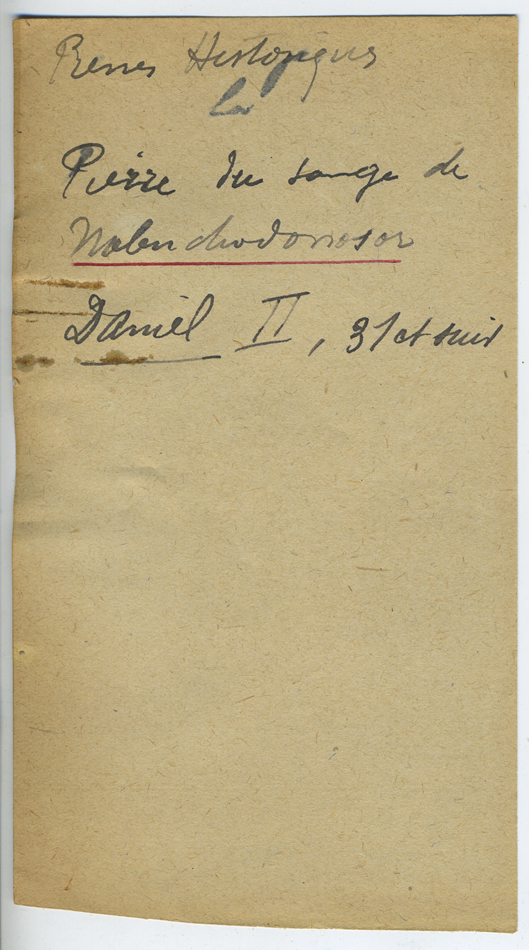 Pierres Historiques
La
Pierre du songe de
Nabuchodonosor
Daniel II, 31 et suiv